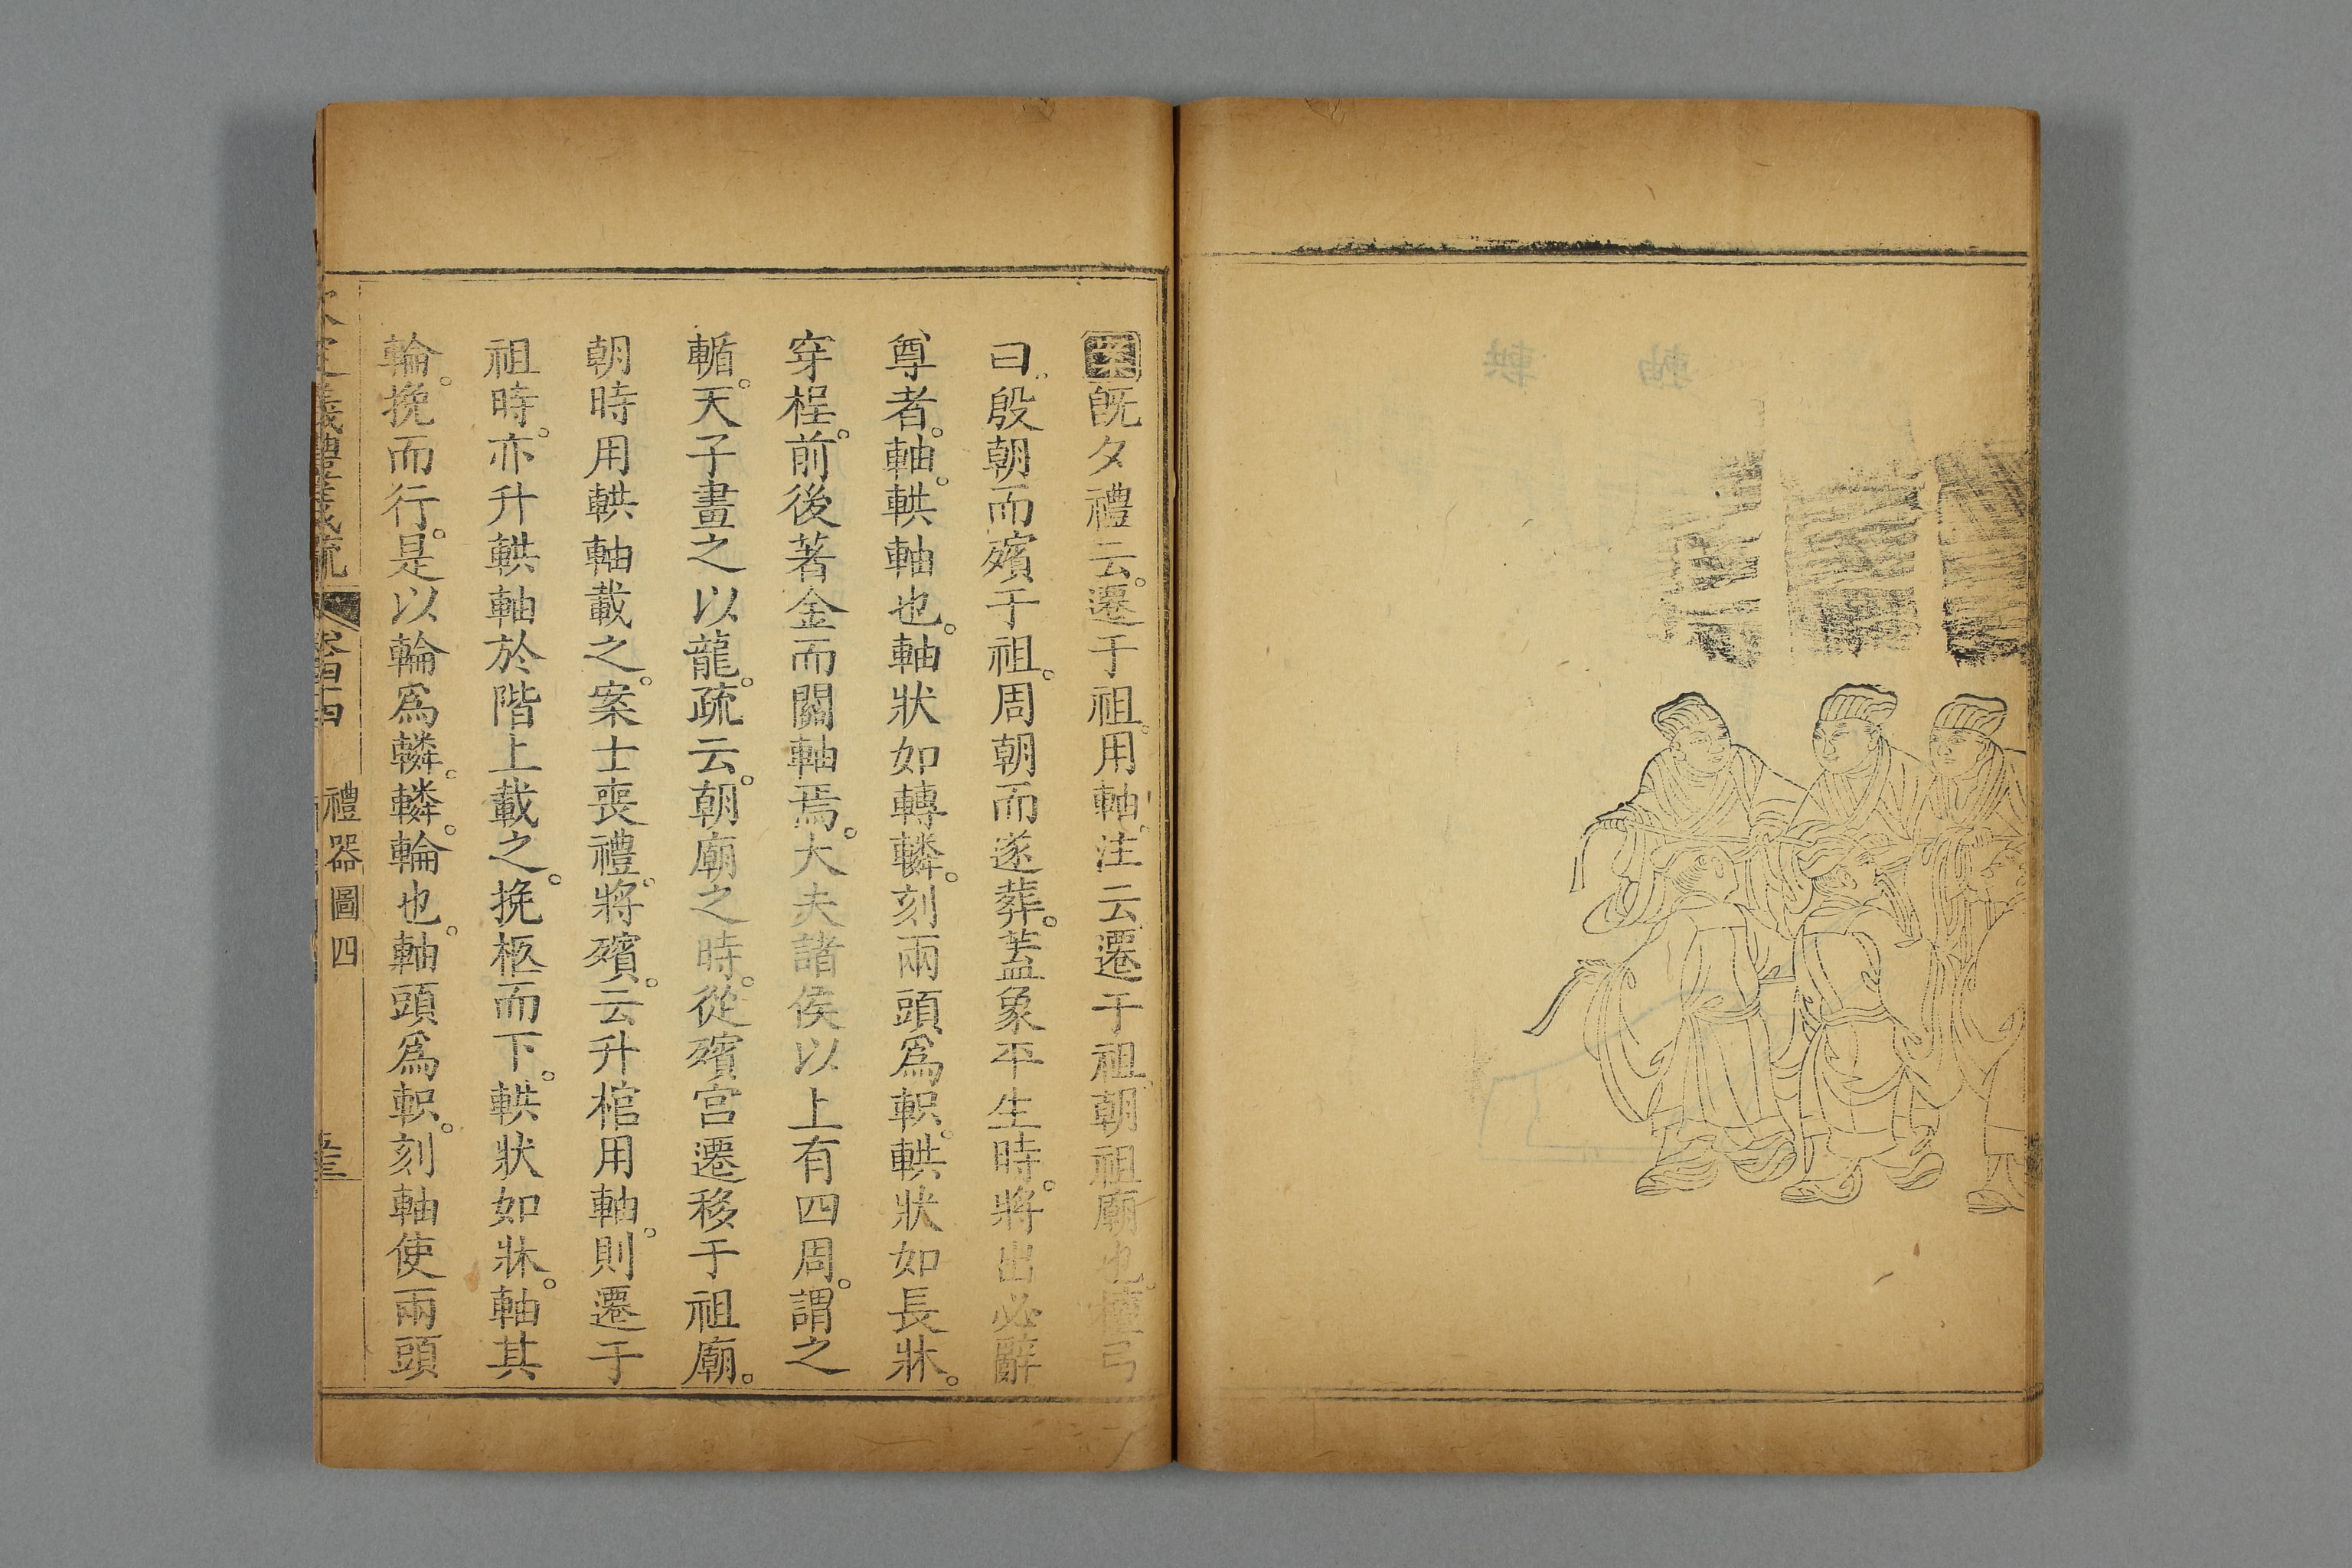 案既夕禮云。遷于祖。用軸。注云。遷于祖。朝祖廟也。檀弓
曰。殷朝而殯于祖。周朝而遂葬。蓋象平生時。將出必辭
尊者。軸。輁軸也。軸狀如轉轔。刻兩頭爲軹。輁狀如長牀。
穿桯。前後著金而關軸焉。大夫諸侯以上有四周。謂之
輴。天子畫之以龍。疏云。朝廟之時。從殯宮遷移于祖廟。
朝時用輁軸載之。案士喪禮。將殯。云升棺用軸。則遷于
祖時。亦升輁軸於階上載之。挽柩而下。輁狀如牀。軸其
輪。挽而行。是以輪爲轔。轔。輪也。軸頭爲軹。刻軸使兩頭
禮器圖四